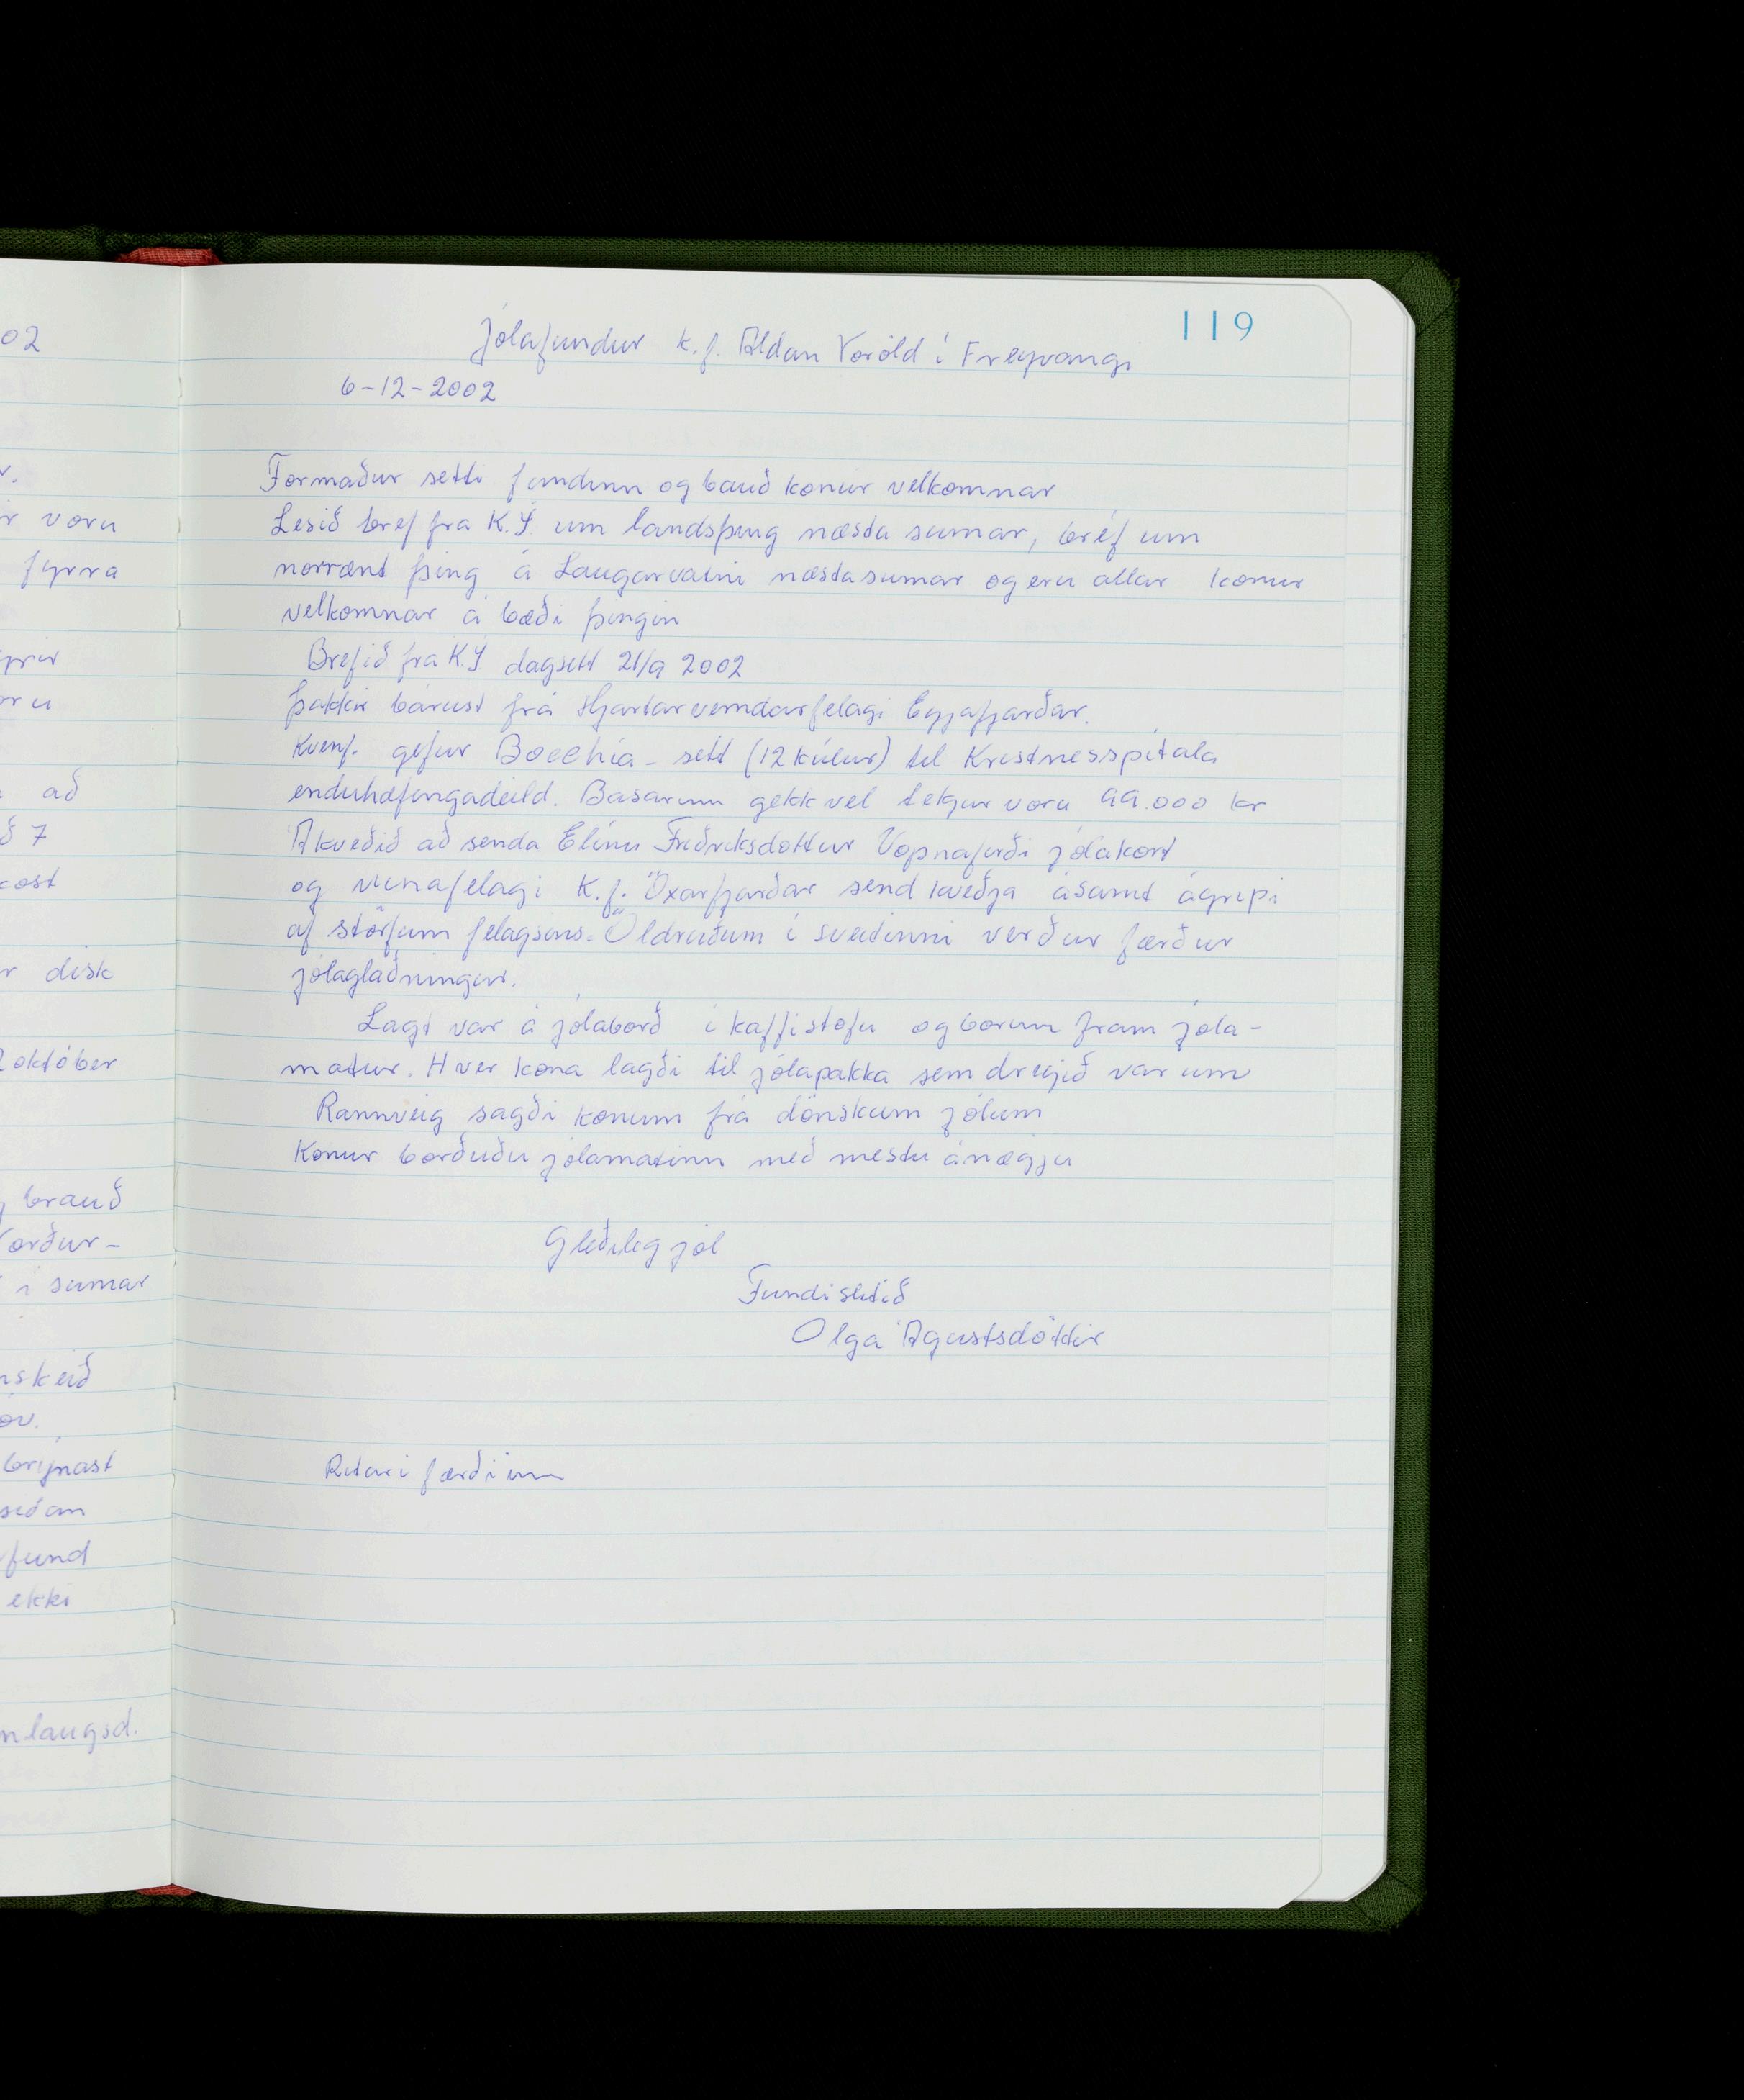 119
Jólafundur k.f. Aldan Voröld í Freyvangi
6-12-2002
Formaður setti fundinn og bauð konur velkomnar
Lesið bref fra K.Í um landsþing næsta sumar, bréf um
norrænt þing á Laugarvatni næsta sumar og eru allar konur
velkomnar á bæði þingin
Brefið fra K.Í dagsett 21/9 2002
Þakkir bárust frá Hjartarverndarfelagi Eyjafjarðar.
Kvenf. gefur Bocchia - sett (12 kúlur) til Kristnesspítala
enduhæfingadeild. Basarinn gekk vel tekjur voru 99.000 kr
Ákveðið að senda Elínu Friðriksdottur Vopnafirði jólakort
og vinafelagi K.f. Öxarfjarðar send kveðja ásamt ágripi
af störfum felagsins. Öldruðum í sveitinni verður færður
jólaglaðningur.
Lagt var á jólaborð í kaffistofu og borinn fram jóla-
matur. Hver kona lagði til jólapakka sem dregið var um
Rannveig sagði konum frá dönskum jólum
Konur borðuðu jólamatinn með mestu ánægju
Gleðileg jól
Fundi slitið
Olga Ágústsdóttir
Ritari færði inn
02
r voru
fyrra
að
ð 7
kost
r disk
október
brauð
í sumar
brýnast
síðan
fund
ekki
nlaugsd.